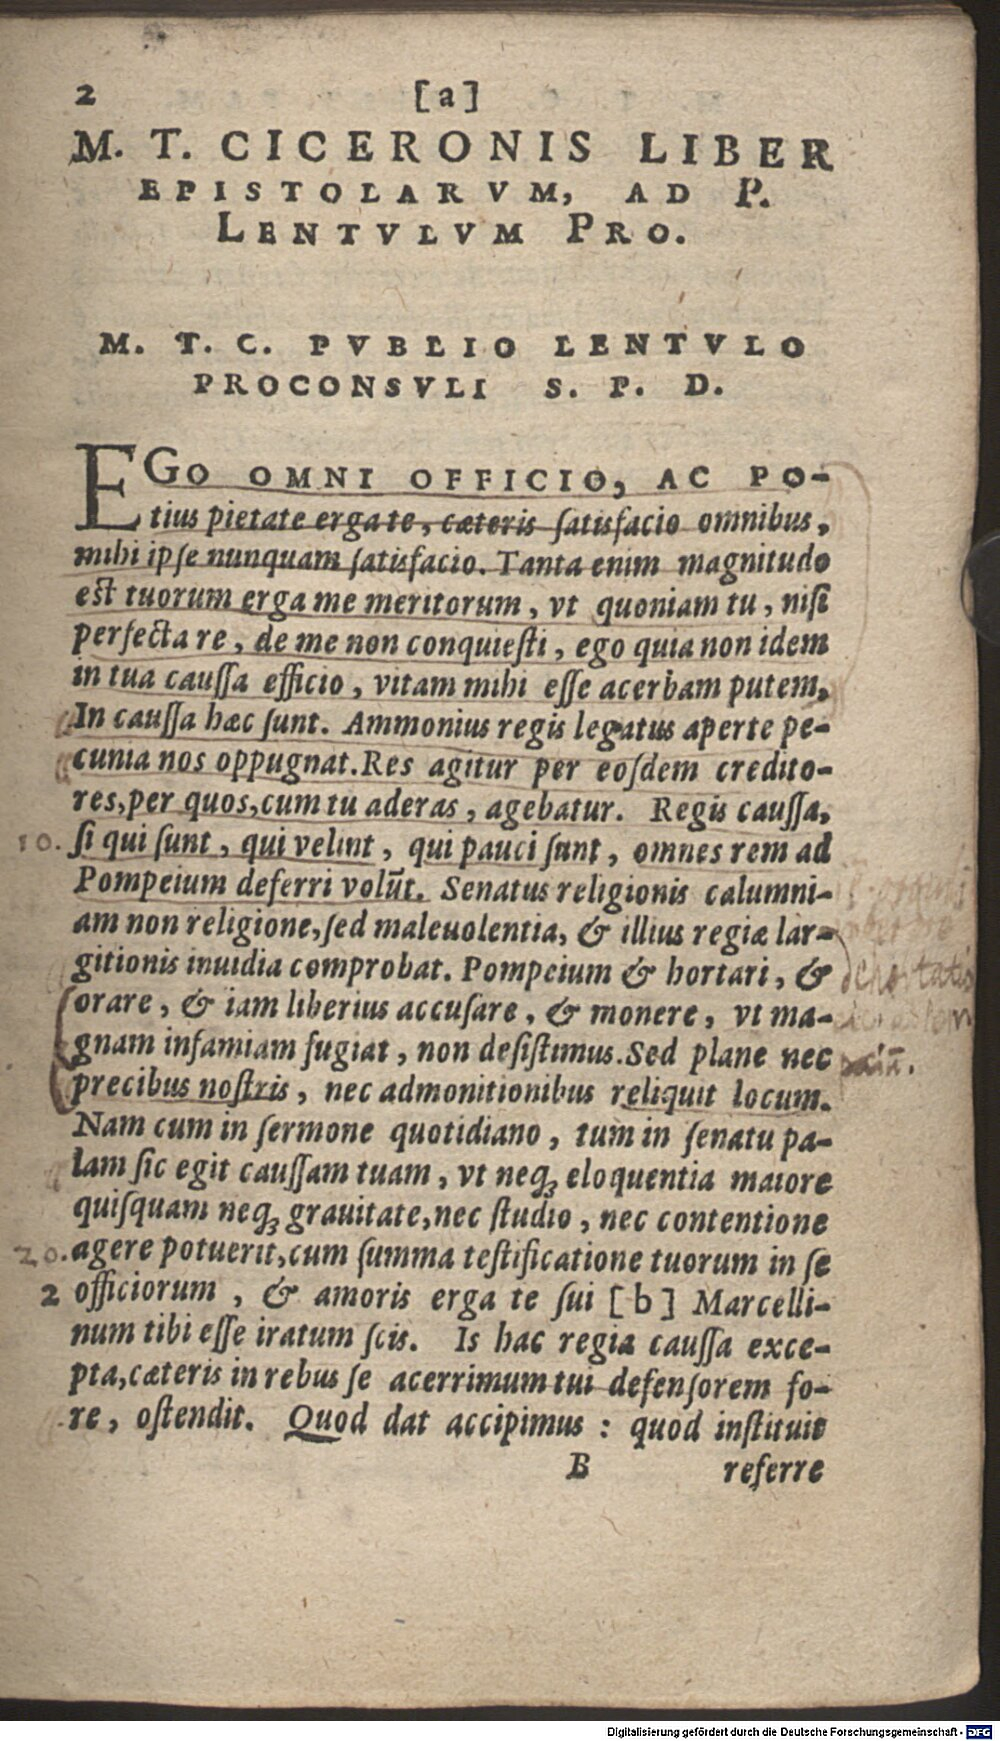 2 [a]
M. T. CICERONIS LIBER
EPISTOLARVM, AD P.
LENTVLVM PRO.
M. T. C. PVBLIO LENTVLO
PROCONSVLI S. P. D.
EGO OMNI OFFICIO, AC PO-
tius pietate erga te, cæteris ſatisfacio omnibus,
mihi ipſe nunquam ſatisfacio. Tanta enim magnitudo
est tuorum erga me meritorum, vt quoniam tu, niſi
perfecta re, de me non conquieſti, ego quia non idem
in tua cauſſa efficio, vitam mihi eſſe acerbam putem,
In cauſſa hæc ſunt. Ammonius regis legatus aperte pe-
cunia nos oppugnat. Res agitur per eoſdem credito-
res, per quos, cum tu aderas, agebatur. Regis cauſſa,
10. ſi qui ſunt, qui velint, qui pauci ſunt, omnes rem ad
Pompeium deferri volūt. Senatus religionis calumni-
am non religione, ſed maleuolentia, & illius regiæ lar-
gitionis inuidia comprobat. Pompeium & hortari, &
orare, & iam liberius accuſare, & monere, vt ma-
gnam infamiam fugiat, non deſiſtimus. Sed plane nec
precibus noſtris, nec admonitionibus reliquit locum.
Nam cum in ſermone quotidiano, tum in ſenatu pa-
lam ſic egit cauſſam tuam, vt neqꝫ eloquentia maiore
quiſquam neqꝫ grauitate, nec ſtudio, nec contentione
20. agere potuerit, cum ſumma teſtificatione tuorum in ſe
2 officiorum, & amoris erga te ſui [b] Marcelli-
num tibi eſſe iratum ſcis. Is hac regia cauſſa exce-
pta, cæteris in rebus ſe acerrimum tui defenſorem fo-
re, oſtendit. Quod dat accipimus : quod inſtituit
B referre
Digitalisierung gefördert durch die Deutsche Forschungsgemeinschaft - DFG